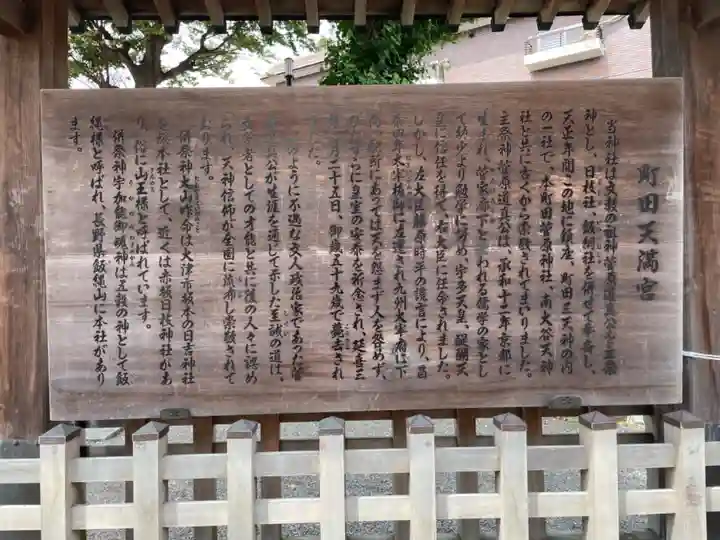 町田天満宮
当神社は文教の祖神菅原道真公を主祭
神とし、日枝社、飯綱社を併せて奉斎し、
天正年間この地に鎮座、町田三天神の内
の一社で、本町田菅原神社、南大谷天神
社と共に古くから崇敬されてまいりました。
主祭神菅原道真公は、承和十二年京都に
生まれ、菅家廊下といわれる儒学の家とし
て幼少より勉学に努め、宇多天皇、醍醐天
皇に信任を得て、右大臣に任命されました。
しかし、左大臣藤原時平の讒言により、昌
泰四年太宰権帥に左遷され九州大宰府に下
配所にあっては天を怨まず人を咎めず、
ひたすらに皇室の安泰を祈念され、延喜三
二月二十五日、御歳五十九歳で薨去され
した。
のように不遇な文人政治家であった菅
公が生涯を通じて示した至誠の道は、
者としての才能と共に後の人々に認め
られ、天神信仰が全国に流布し崇敬されて
おります。
併祭神大山咋命は大津市坂本の日吉神社
を総本社として、近くは赤坂日枝神社があ
り、俗に山王様と呼ばれています。
併祭神宇加能御魂神は五穀の神として飯
縄様と呼ばれ、長野県飯縄山に本社があり
ます。